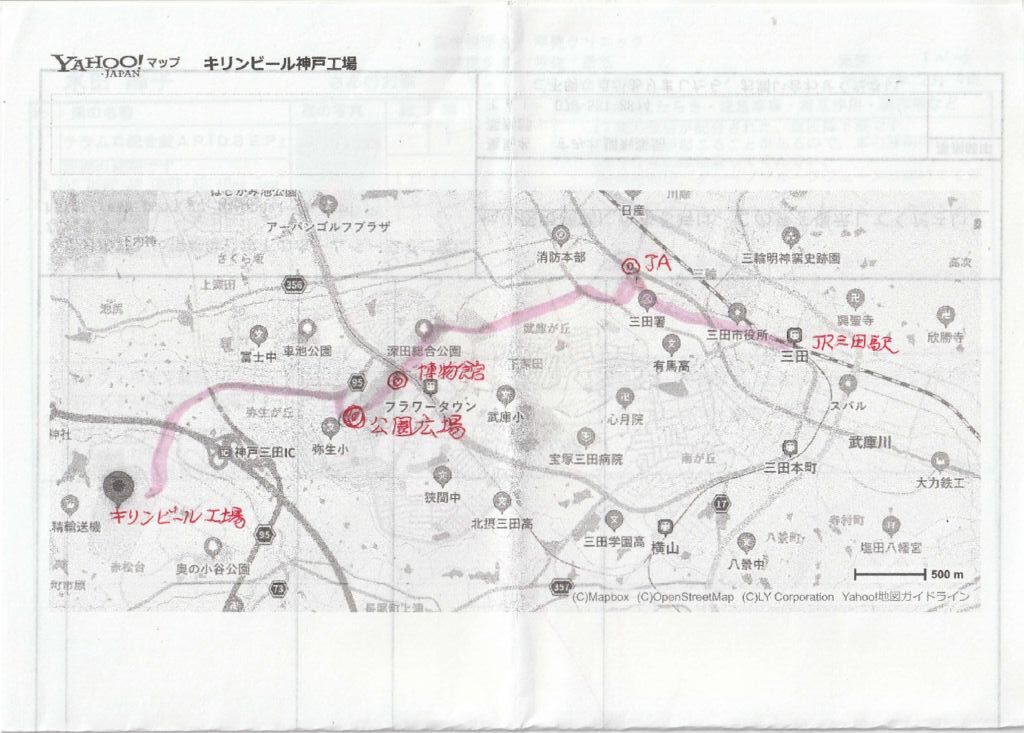 YAHOO! JAPAN マップ キリンビール神戸工場
日産
アーバンゴルフプラザ
消防本部
JA
三輪
三輪明神窯史跡園
高次
さくら坂
上深田
356
三田署
三田市役所
興聖寺
欣勝寺
JR三田駅
三田
武庫が丘
富士中
車池公園
深田総合公園
下深田
有馬高
博物館
95
フラワータウン
武庫小
心月院
スバル
公園広場
弥生が丘
弥生小
神社
神戸三田IC
宝塚三田病院
南が丘
三田本町
武庫川
大力鉄工
狭間中
キリンビール工場
精輪送機
北摂三田高
17
三田学園高
横山
八景町
八景中
寺村町
塩田八幡宮
95
赤松台
奥の小谷公園
町市原
73
357
500 m
(C)Mapbox (C)OpenStreetMap (C)LY Corporation Yahoo!地図ガイドライン